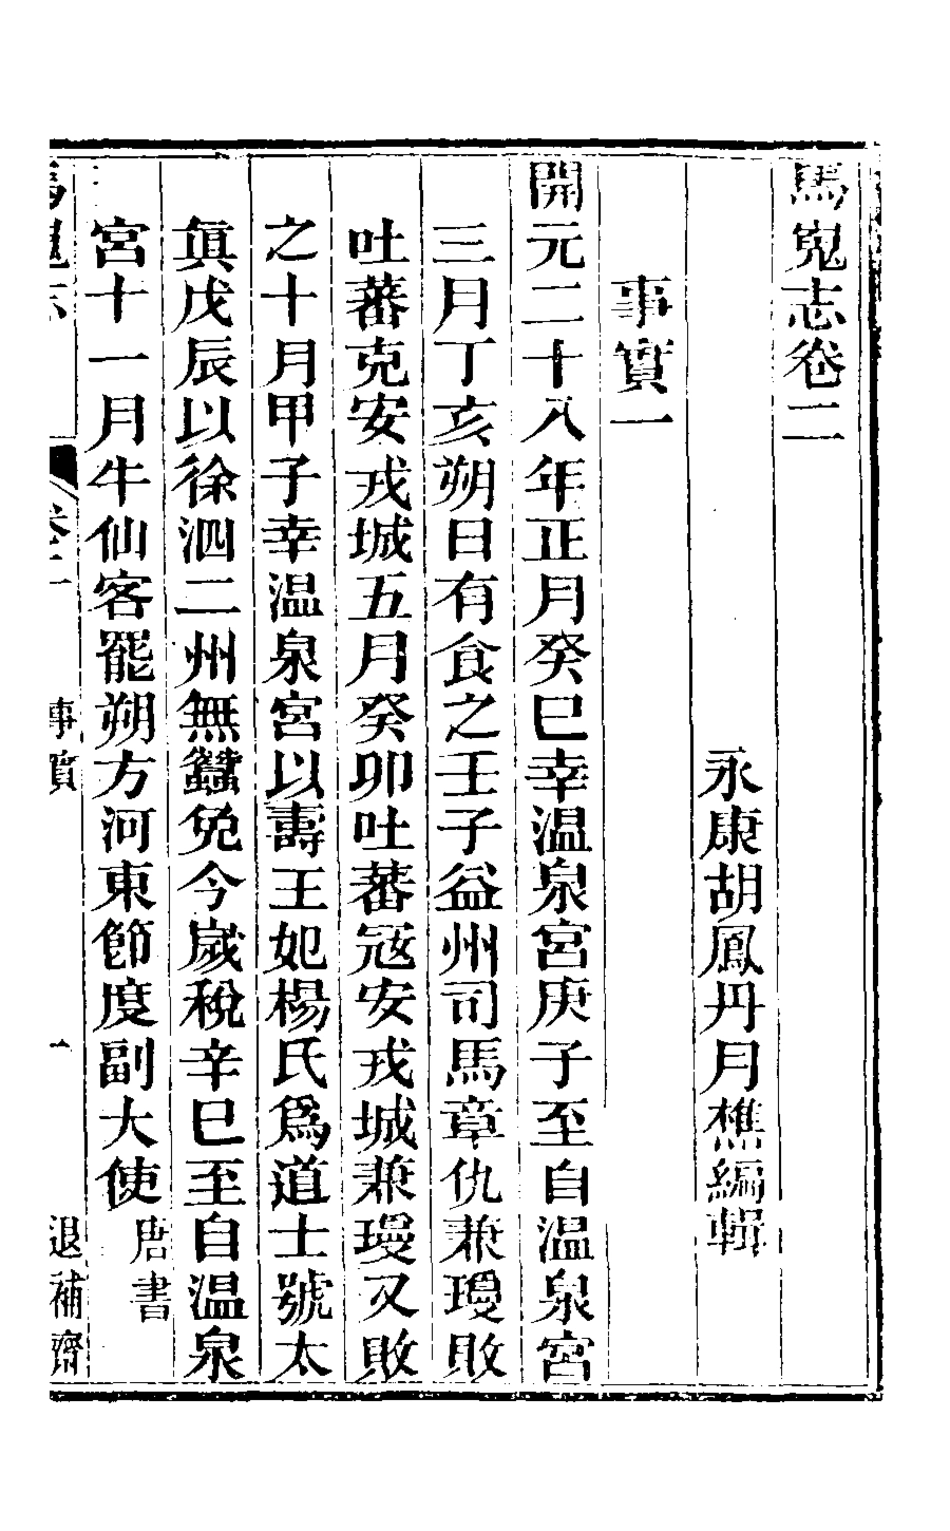 馬嵬志卷二
永康胡鳳丹月樵編輯
事實一
開元二十八年正月癸巳幸温泉宮庚子至自温泉宮
三月丁亥朔日有食之壬子益州司馬章仇兼瓊敗
吐蕃克安戎城五月癸卯吐蕃寇安戎城兼瓊又敗
之十月甲子幸温泉宮以壽王妃楊氏爲道士號太
眞戊辰以徐泗二州無蠶免今歲稅辛巳至自温泉
宮十一月牛仙客罷朔方河東節度副大使唐書
馬嵬志 卷二 事實 一 退補齋